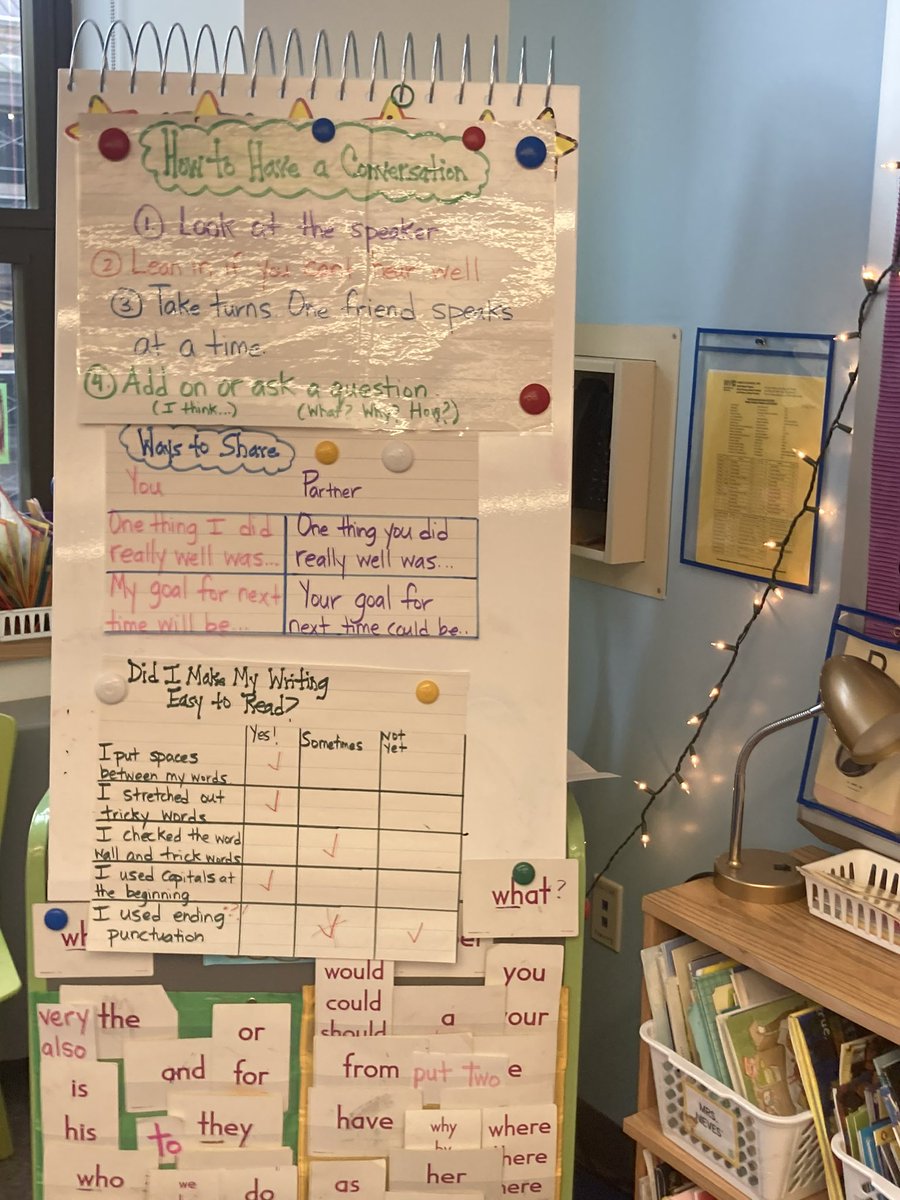 How to Have a Conversation
① Look at the speaker
② Lean in if you can't hear well
③ Take turns. One friend speaks
at a time.
④ Add on or ask a question
(I think...) (What? Why? How?)
Ways to Share
You Partner
One thing I did One thing you did
really well was... really well was...
My goal for next Your goal for
time will be... next time could be..
Did I Make My Writing
Easy to Read?
Yes! Sometimes Not
Yet
I put spaces
between my words
I stretched out
tricky words
I checked the word
wall and trick words
I used capitals at
the beginning
I used ending
punctuation
what?
would
could
should
you
very
also
the
or
a
and
for
from
put two
is
his
to
they
have
why
where
who
we
do
as
her
here
MRS.
NEVES'